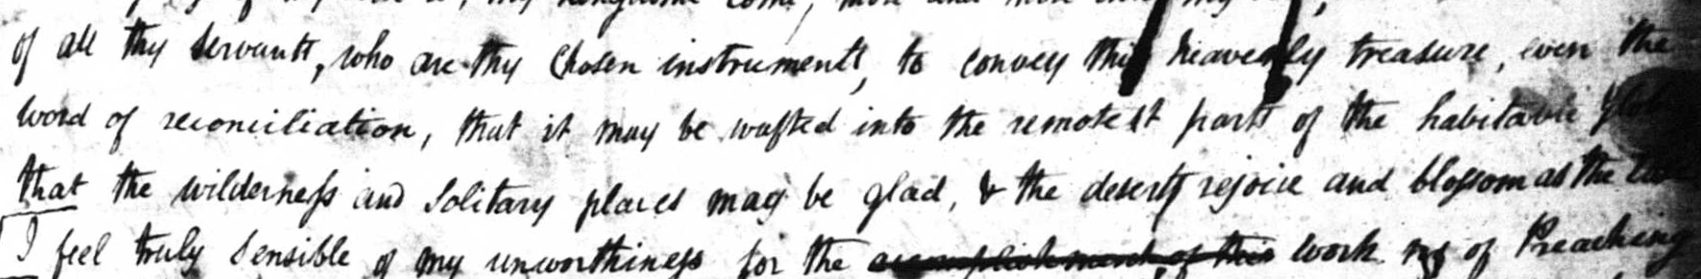 of all thy servants, who are thy Chosen instruments, to convey this heavenly treasure, even the
word of reconciliation, that it may be wafted into the remotest parts of the habitable
that the wilderness and Solitary places may be glad, & the deserts rejoice and blossom as the
I feel truly sensible of my unworthiness for the accomplishment of this work of Preaching